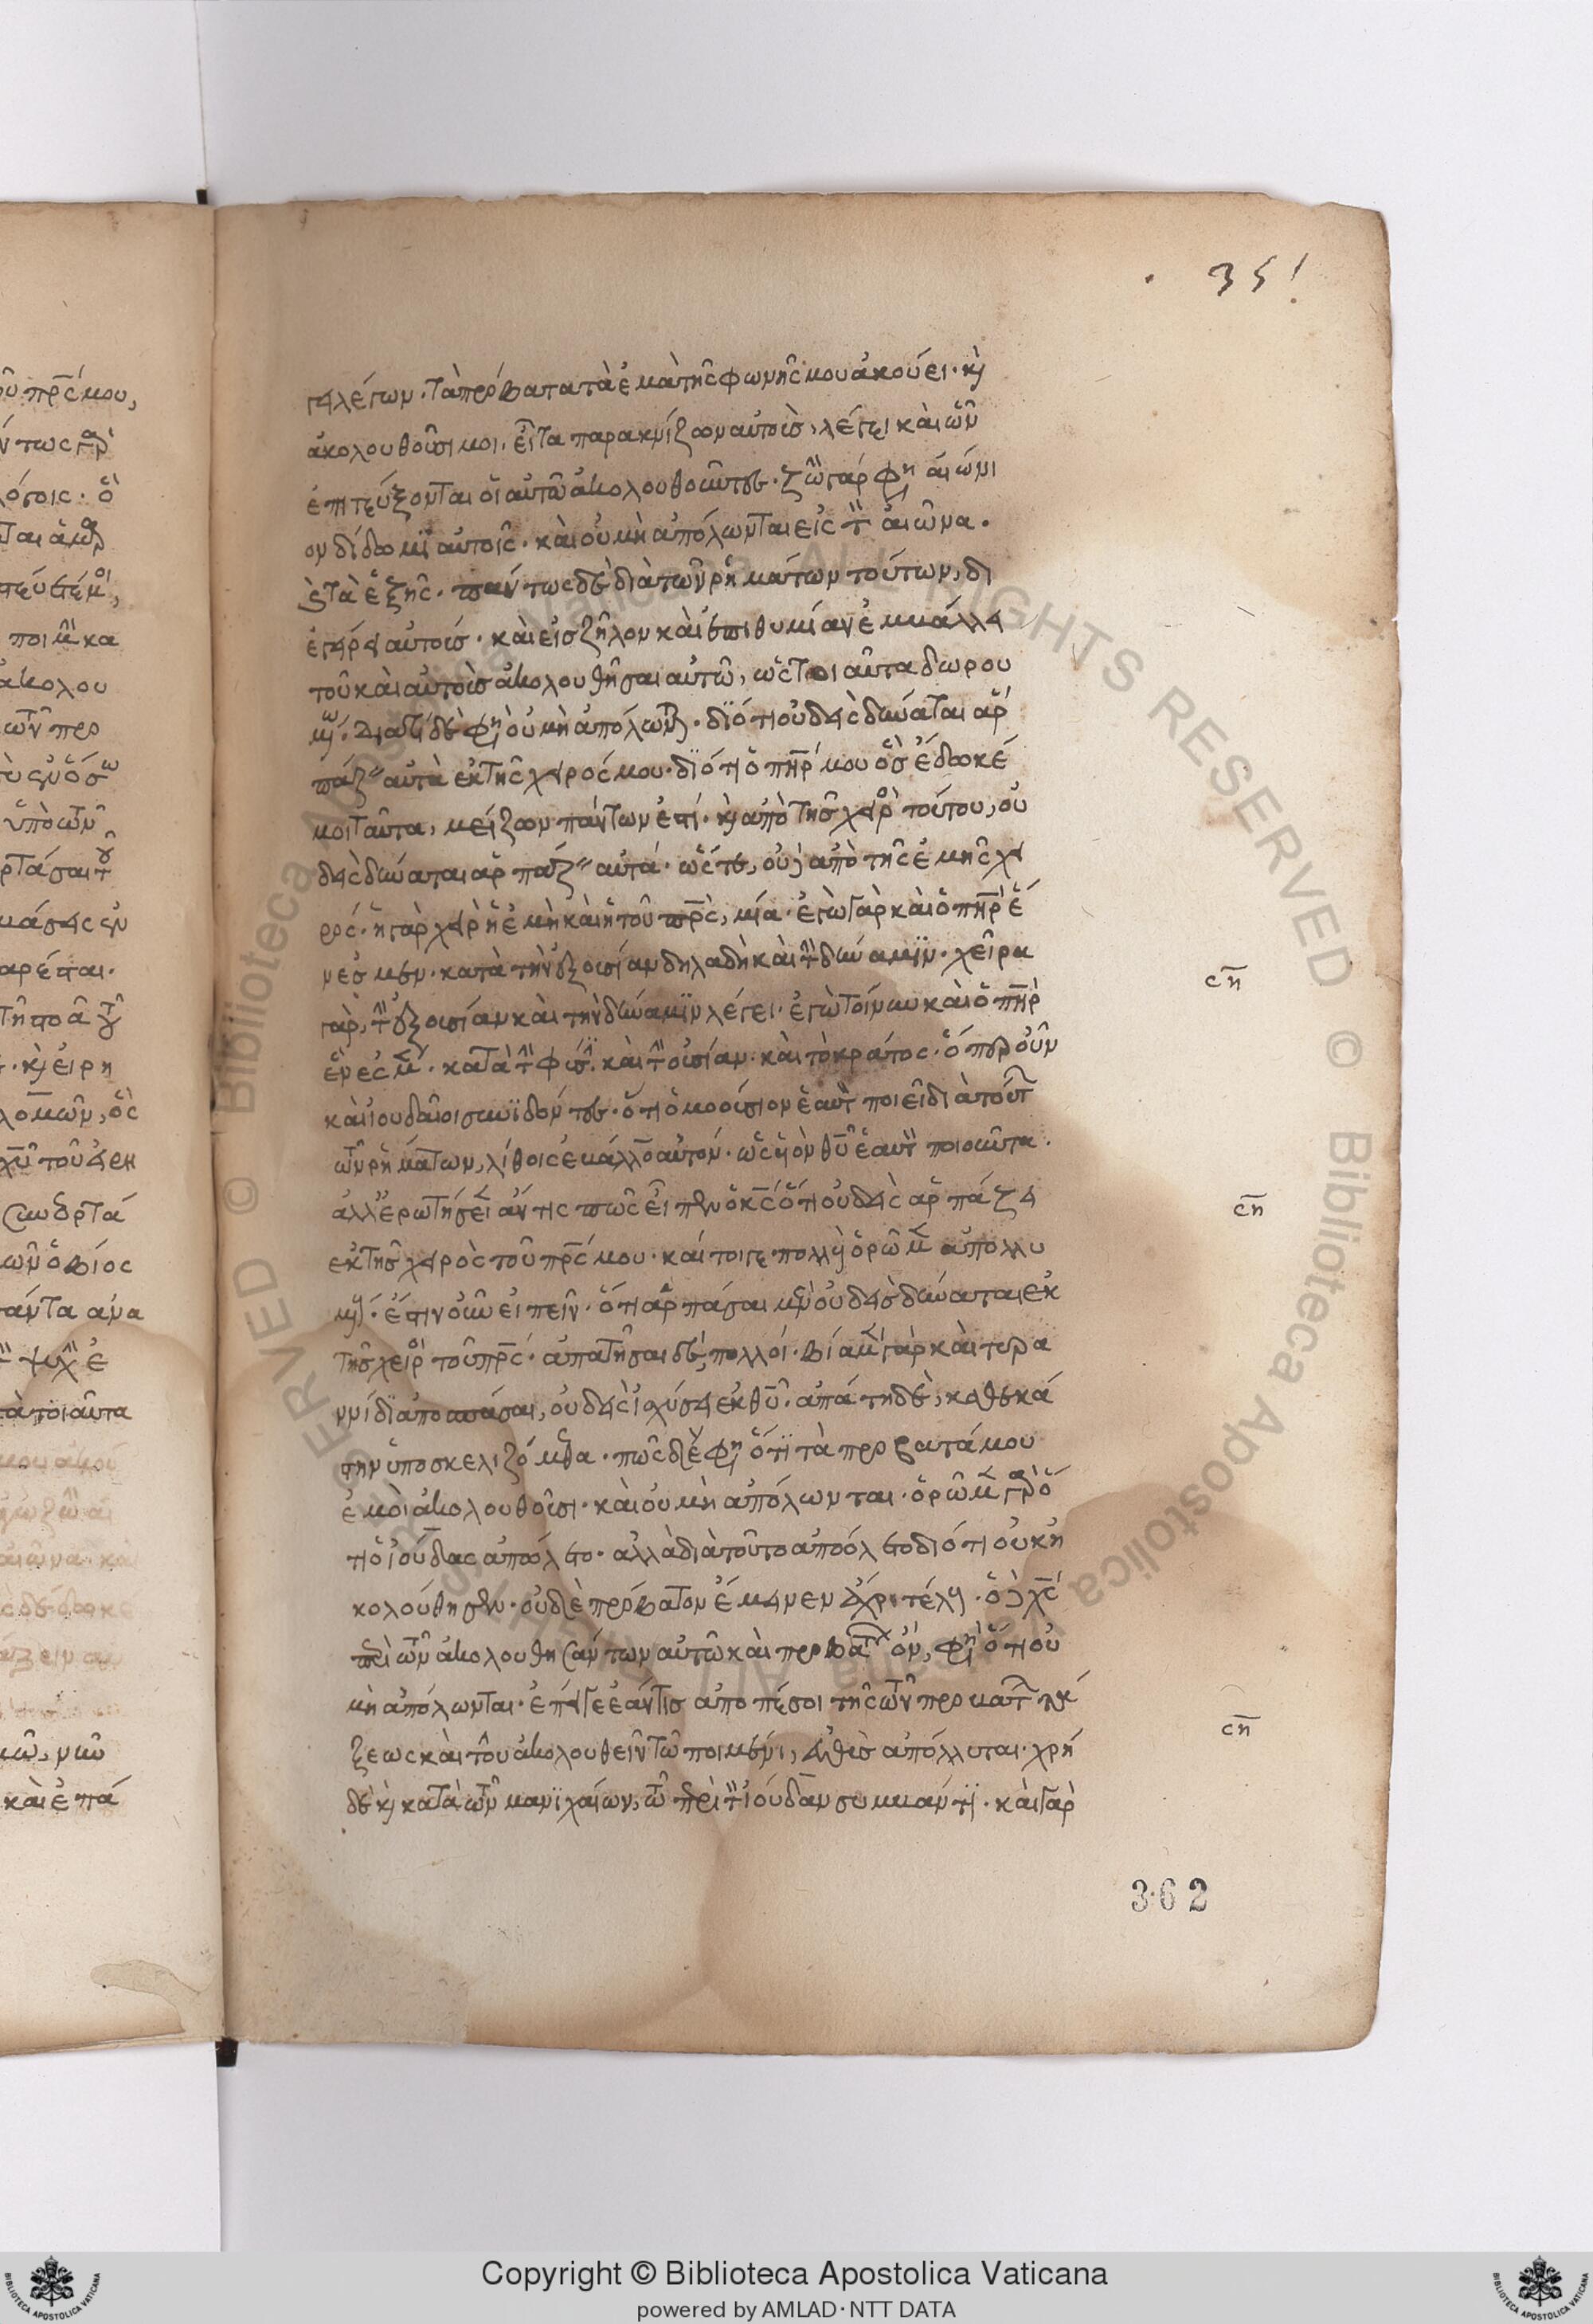 351
γει λέγων· τὰ πρόβατα τὰ ἐμὰ τῆς φωνῆς μου ἀκούει· κ(αὶ)
ἀκολουθοῦσί μοι. εἶτα παρακνίζων αὐτοὺς, λέγει καὶ ὧν
ἐπιτεύξονται οἱ αὐτῶ ἀκολουθοῦντες· ζωὴν γάρ φη(σιν) αἰώνι
ον δίδωμι αὐτοῖς· καὶ οὐ μὴ ἀπόλωνται εἰς τὸν αἰῶνα.
κ(αὶ) τὰ ἑξῆς· πάντως δὲ διὰ τῶν ῥημάτων τούτων, δι
εγείρει αὐτούς· καὶ εἰς ζῆλον καὶ ἐπιθυμίαν ἐμβάλλει
τοῦ καὶ αὐτοὺς ἀκολουθῆσαι αὐτῶ, ὡς τοιαῦτα δωρου
μένω. διατί δέ φη(σιν) οὐ μὴ ἀπόλωνται· διότι οὐδεὶς δύναται ἁρ
πάζειν αὐτὰ ἐκ τῆς χειρός μου· διότι ὁ π(ατ)ήρ μου ὃς ἔδωκέ
μοι ταῦτα, μείζων πάντων ἐστί· κ(αὶ) ἀπὸ τῆς χειρὸς τούτου, οὐ
δεὶς δύναται ἁρπάζειν αὐτά· ὥστε, οὐδ' ἀπὸ τῆς ἐμῆς χει
ρός· ἡ γὰρ χεὶρ ἡ ἐμὴ καὶ ἡ τοῦ π(ατ)ρ(ὸ)ς, μία· ἐγὼ γὰρ καὶ ὁ π(ατ)ὴρ ἕ
ν ἐσμεν· κατὰ τὴν ἐξουσίαν δηλαδὴ καὶ τὴν δύναμιν· χεῖρα
γὰρ, τὴν ἐξουσίαν καὶ τὴν δύναμιν λέγει· ἐγὼ τοίνυν καὶ ὁ π(ατ)ὴρ
ἕν ἐσμεν· κατὰ τὴν φύσιν. καὶ τὴν οὐσίαν· καὶ τὸ κράτος· ὅπερ οὖν
καὶ ἰουδαῖοι συνιδόντες· ὅτι ὁμοούσιον ἑαυτὸν ποιεῖ διὰ τούτων
τῶν ῥημάτων, λίθοις ἔβαλλον αὐτόν· ὡς υἱὸν θ(εο)ῦ ἑαυτὸν ποιοῦντα.
ἀλλ' ἐρωτήσειεν ἄν τις πῶς εἶπεν ὁ κ(ύριο)ς ὅτι οὐδεὶς ἁρπάζει
ἐκ τῆς χειρὸς τοῦ π(ατ)ρ(ό)ς μου· καίτοιγε πολλοὺς ὁρῶμεν ἀπολλυ
μένους· ἔστιν οὖν εἰπεῖν· ὅτι ἁρπάσαι μὲν οὐδεὶς δύναται ἐκ
τῆς χειρὸς τοῦ π(ατ)ρ(ό)ς· ἀπατῆσαι δὲ, πολλοί· βία μὲν γὰρ καὶ τυρα
ννίδι ἀποσπάσαι, οὐδεὶς ἰσχύσει ἐκ θ(εο)ῦ· ἀπάτη δὲ, καθ' ἑκά
στην ὑποσκελιζόμεθα· πῶς δὲ φη(σιν) ὅτι τὰ πρόβατά μου
ἐμοὶ ἀκολουθοῦσι· καὶ οὐ μὴ ἀπόλωνται· ὁρῶμεν γὰρ ὅ
τι ὁ ἰούδας ἀπώλετο· ἀλλὰ διὰ τοῦτο ἀπώλετο διότι οὐκ ἠ
κολούθησεν· οὐδὲ πρόβατον ἔμεινεν ἄχρι τέλους· ὁ δὲ χ(ριστὸ)ς
περὶ τῶν ἀκολουθησάντων αὐτῶ καὶ προβάτων, φη(σὶν) ὅτι οὐ
μὴ ἀπόλωνται· ἐπεί γε ἐάν τις ἀποπέσοι τῆς τῶν προβάτων τά
ξεως καὶ τοῦ ἀκολουθεῖν τῶ ποιμένι, εὐθὺς ἀπόλλυται· χρή
δὲ κ(αὶ) κατὰ τῶν μανιχαίων, τῶ περὶ τὸν ἰούδαν συμβάντι· καὶ γὰρ
ση
ση
ση
362
Copyright © Biblioteca Apostolica Vaticana
powered by AMLAD·NTT DATA